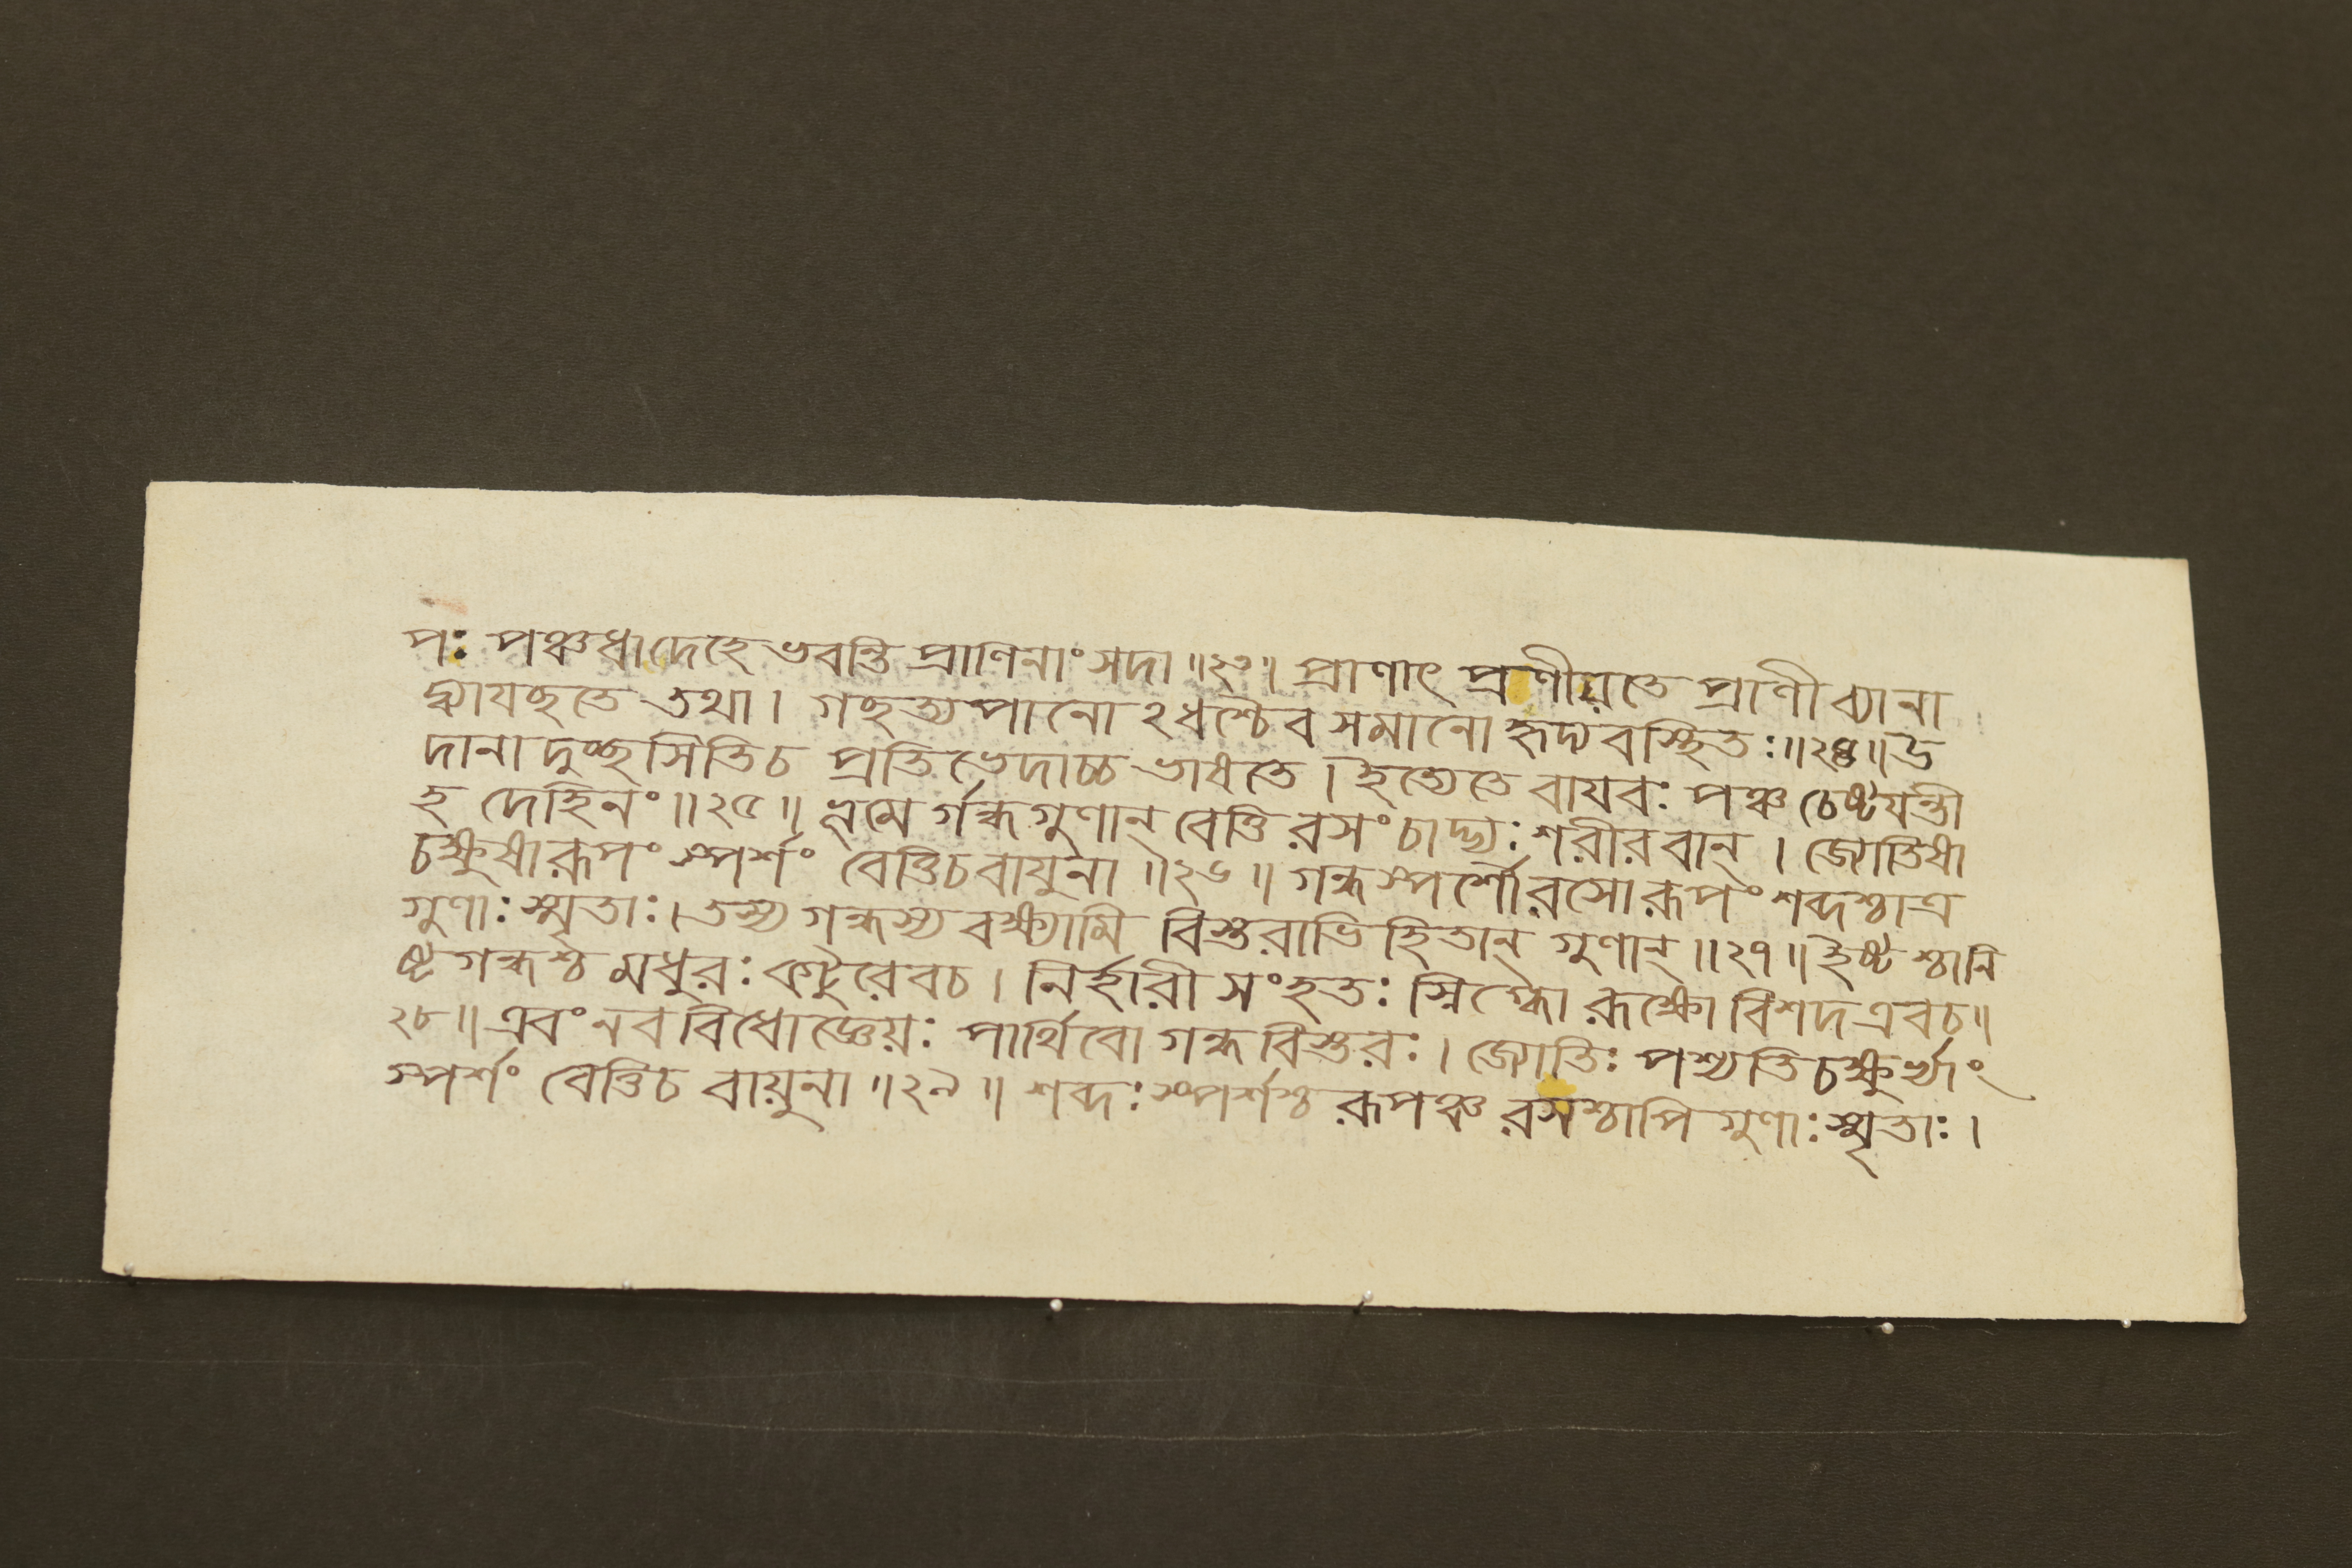 পঃ পঞ্চধাদেহে ভবন্তি প্রাণিনাং সদা॥২৩॥ প্রাণাৎ প্রণীয়তে প্রাণী ব্যানা
দ্ব্যাযচ্ছতে তথা। গচ্ছত্যপানো ২ধশ্চৈব সমানো হৃদ্যবস্থিতঃ॥২৪॥উ
দানা দুচ্ছ্বসিতিচ প্রতিভেদাচ্চ ভাষতে। ইত্যেতে বাযবঃ পঞ্চ চেষ্টযন্তী
হ দেহিনং॥২৫॥ ভূমে র্গন্ধগুণান্ বেত্তি রসং চাদ্ভ্যঃ শরীরবান্। জ্যোতিষা
চক্ষুষারূপং স্পর্শং বেত্তিচবায়ুনা॥২৬॥ গন্ধস্পর্শৌরসোরূপং শব্দশ্চাত্র
গুণাঃ স্মৃতাঃ।তস্য গন্ধস্য বক্ষ্যামি বিস্তরাভিহিতান্ গুণান্॥২৭॥ইষ্টশ্চানি
ষ্টগন্ধশ্চ মধুরঃ কটুরেবচ। নির্হারী সংহতঃ স্নিগ্ধো রূক্ষো বিশদএবচ॥
২৮॥এবং নববিধোজ্ঞেয়ঃ পার্থিবো গন্ধবিস্তরঃ। জ্যোতিঃ পশ্যতিচক্ষুর্ভ্যাং
স্পর্শং বেত্তিচ বায়ুনা॥২৯॥ শব্দঃস্পর্শশ্চ রূপঞ্চ রসশ্চাপি গুণাঃস্মৃতাঃ।